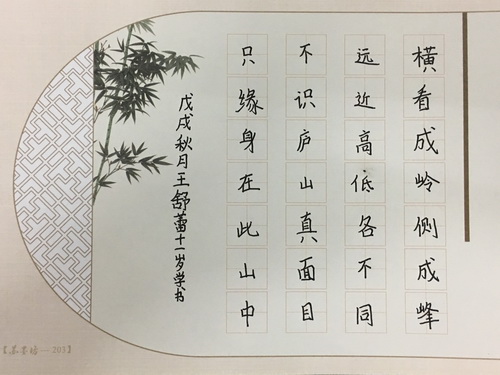 横看成岭侧成峰
远近高低各不同
不识庐山真面目
只缘身在此山中
戊戌秋月王舒蕾十一岁学书